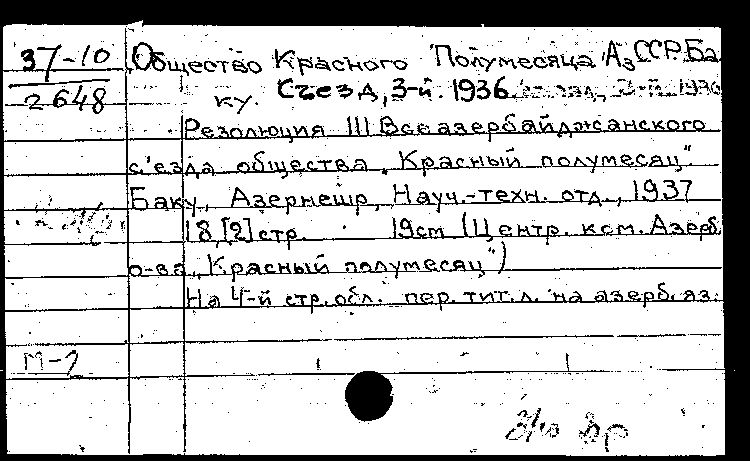 37-10
2648
Общество Красного Полумесяца АзССР. Ба
ку. Съезд, 3-й. 1936.
Резолюция III Всеазербайджанского
с'езда общества „Красный полумесяц"
Баку, Азернешр, Науч.-техн. отд., 1937
18,[2] стр. 19см (Центр. ком. Азерб.
о-ва „Красный полумесяц")
На 4-й стр. обл. пер. тит. л. на азерб. яз.
М-2